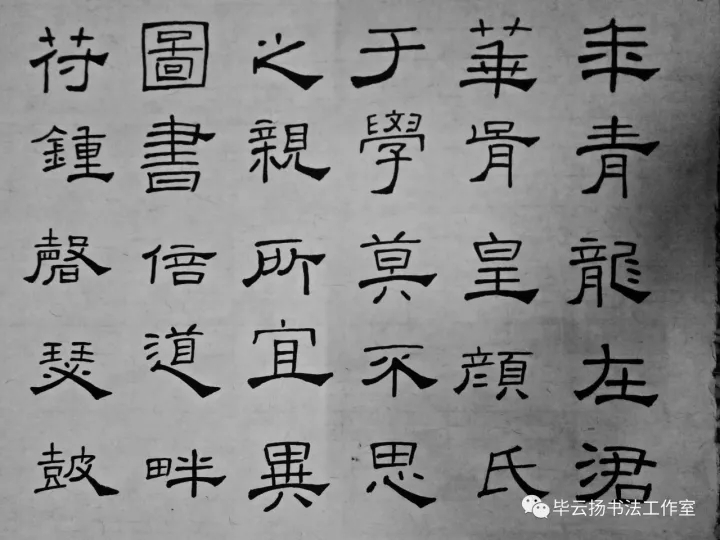 年青龍在涒
華胥皇顏氏
于學莫不思
之親所宜異
圖書倍道畔
苻鍾磬瑟鼓
毕云扬书法工作室